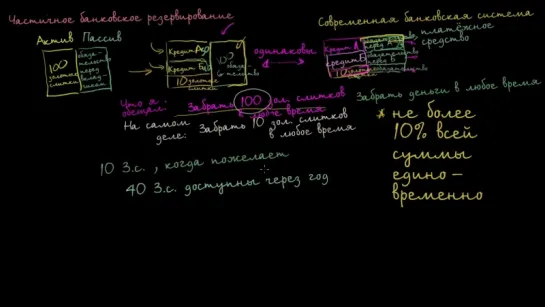 Частичное банковское резервирование
Современная банковская система
Актив Пассив
100
золотых
слитков
Кредит А
Кредит
10
слитки
одинаковы
Кредит А
Кредит В
10
платёжное
средство
Что я
обещал:
Забрать 100 зол. слитков
в любое время
Забрать деньги в любое время
На самом
деле: Забрать 10 зол. слитков
в любое время
* не более
10% всей
суммы
едино-
временно
10 З.с., когда пожелает
40 З.с. доступны через год